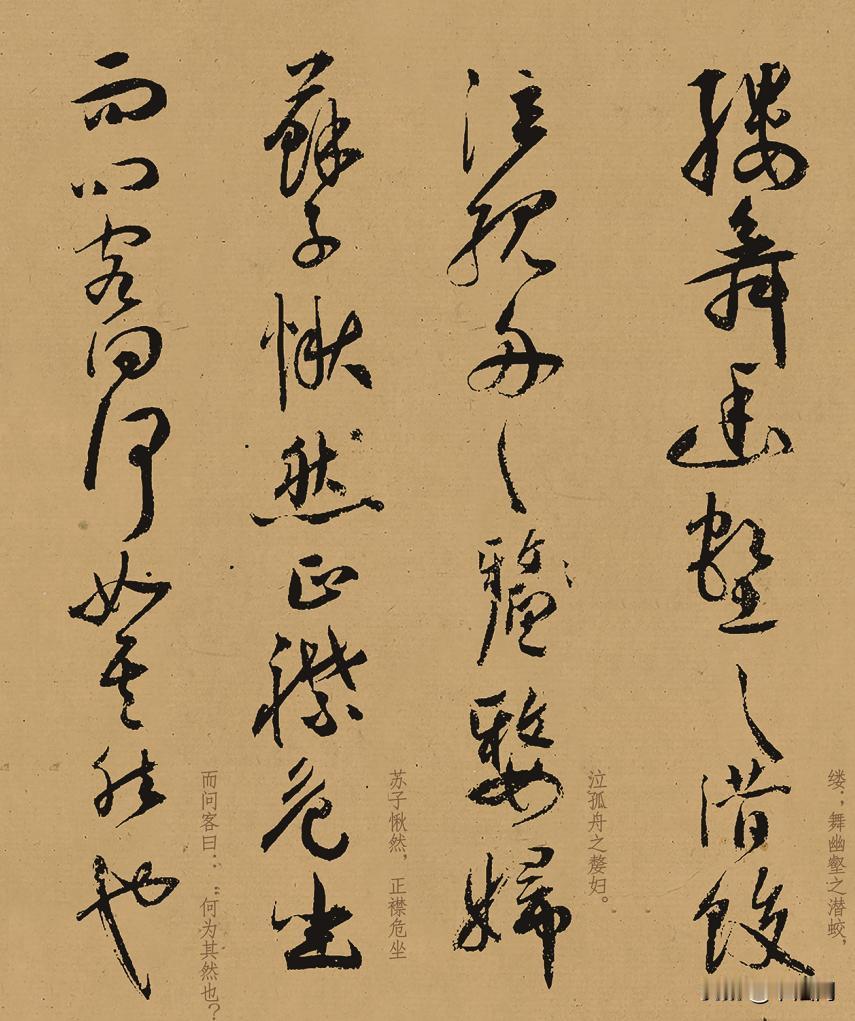 縷舞幽壑之潛蛟
缕；舞幽壑之潜蛟，
泣孤舟之嫠婦
泣孤舟之嫠妇。
蘇子愀然正襟危坐
苏子愀然，正襟危坐
而問客曰何如其然也
而问客曰：“何为其然也？